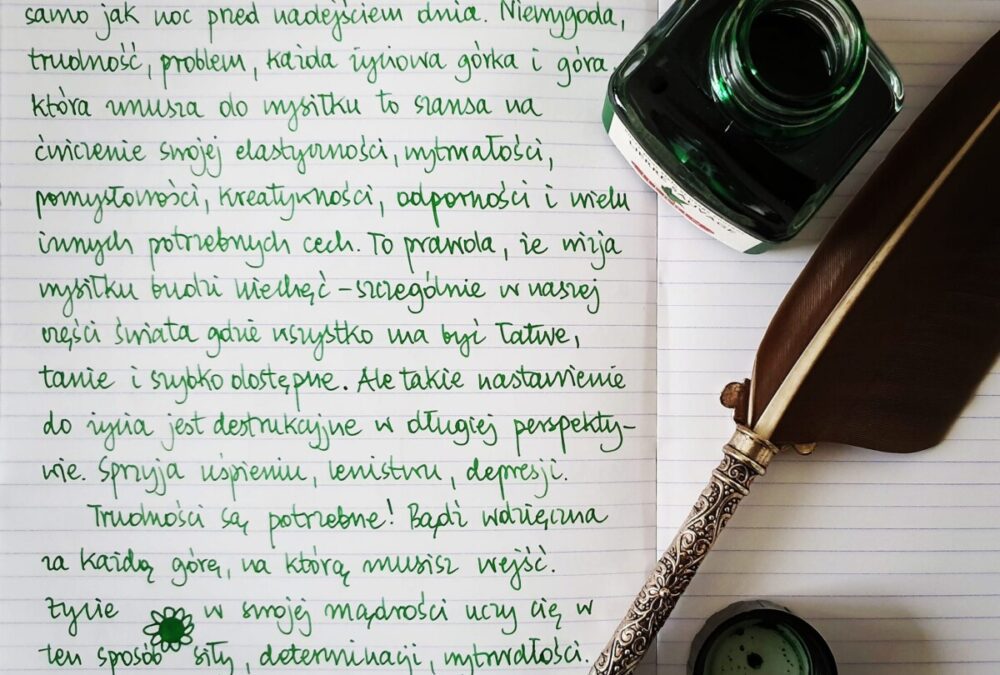 samo jak noc przed nadejściem dnia. Niewygoda,
trudność, problem, każda życiowa górka i góra,
która zmusza do wysiłku to szansa na
ćwiczenie swojej elastyczności, wytrwałości,
pomysłowości, kreatywności, odporności i wielu
innych potrzebnych cech. To prawda, że wizja
wysiłku budzi niechęć – szczególnie w naszej
części świata gdzie wszystko ma być łatwe,
tanie i szybko dostępne. Ale takie nastawienie
do życia jest destrukcyjne w długiej perspekty-
wie. Sprzyja uśpieniu, lenistwu, depresji.
Trudności są potrzebne! Bądź wdzięczna
za każdą górę, na którą musisz wejść.
Życie w swojej mądrości uczy cię w
ten sposób siły, determinacji, wytrwałości.
TERRE SAUVAGE